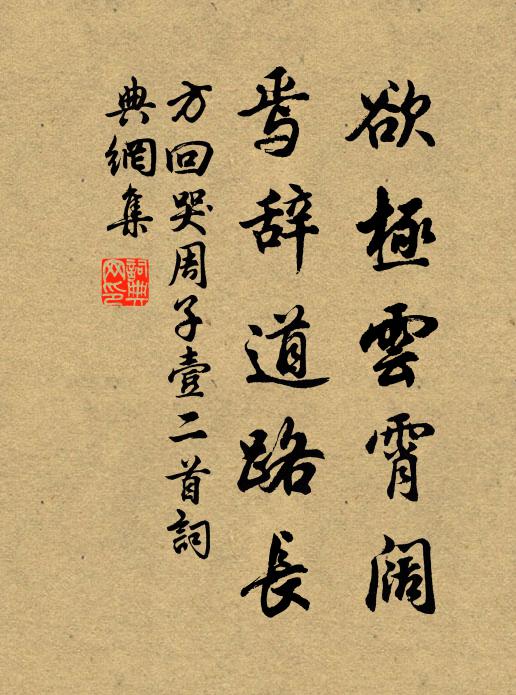 欲極雲霄阔
焉辞道路長
方回哭周子壹二首詞
典網集
詞典
网印